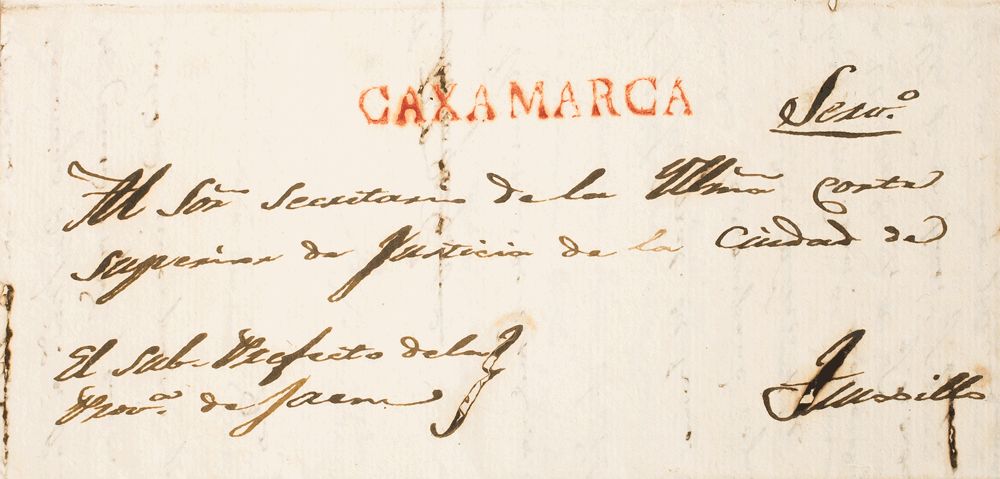 CAXAMARCA
Servo.
Al Sor. Secretario de la Yllma. Corte
Superior de Justicia de la Ciudad de
Truxillo
El sub-Prefecto de la
Prova. de Jaen